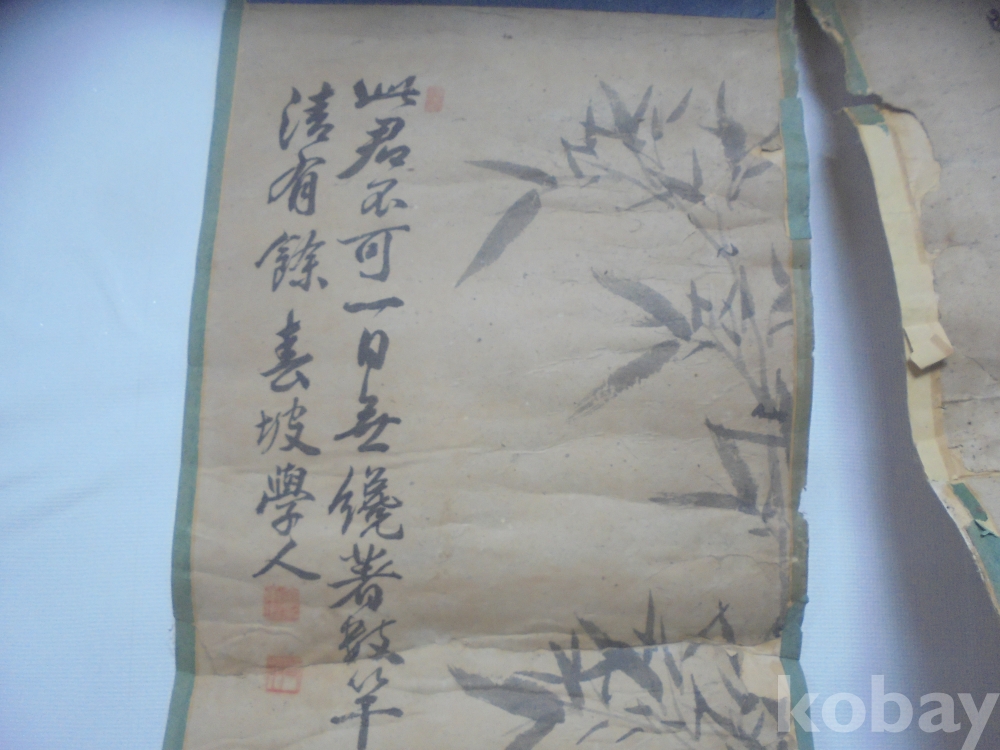 此君不可一日無纔著數竿
清有餘 春坡學人
kobay